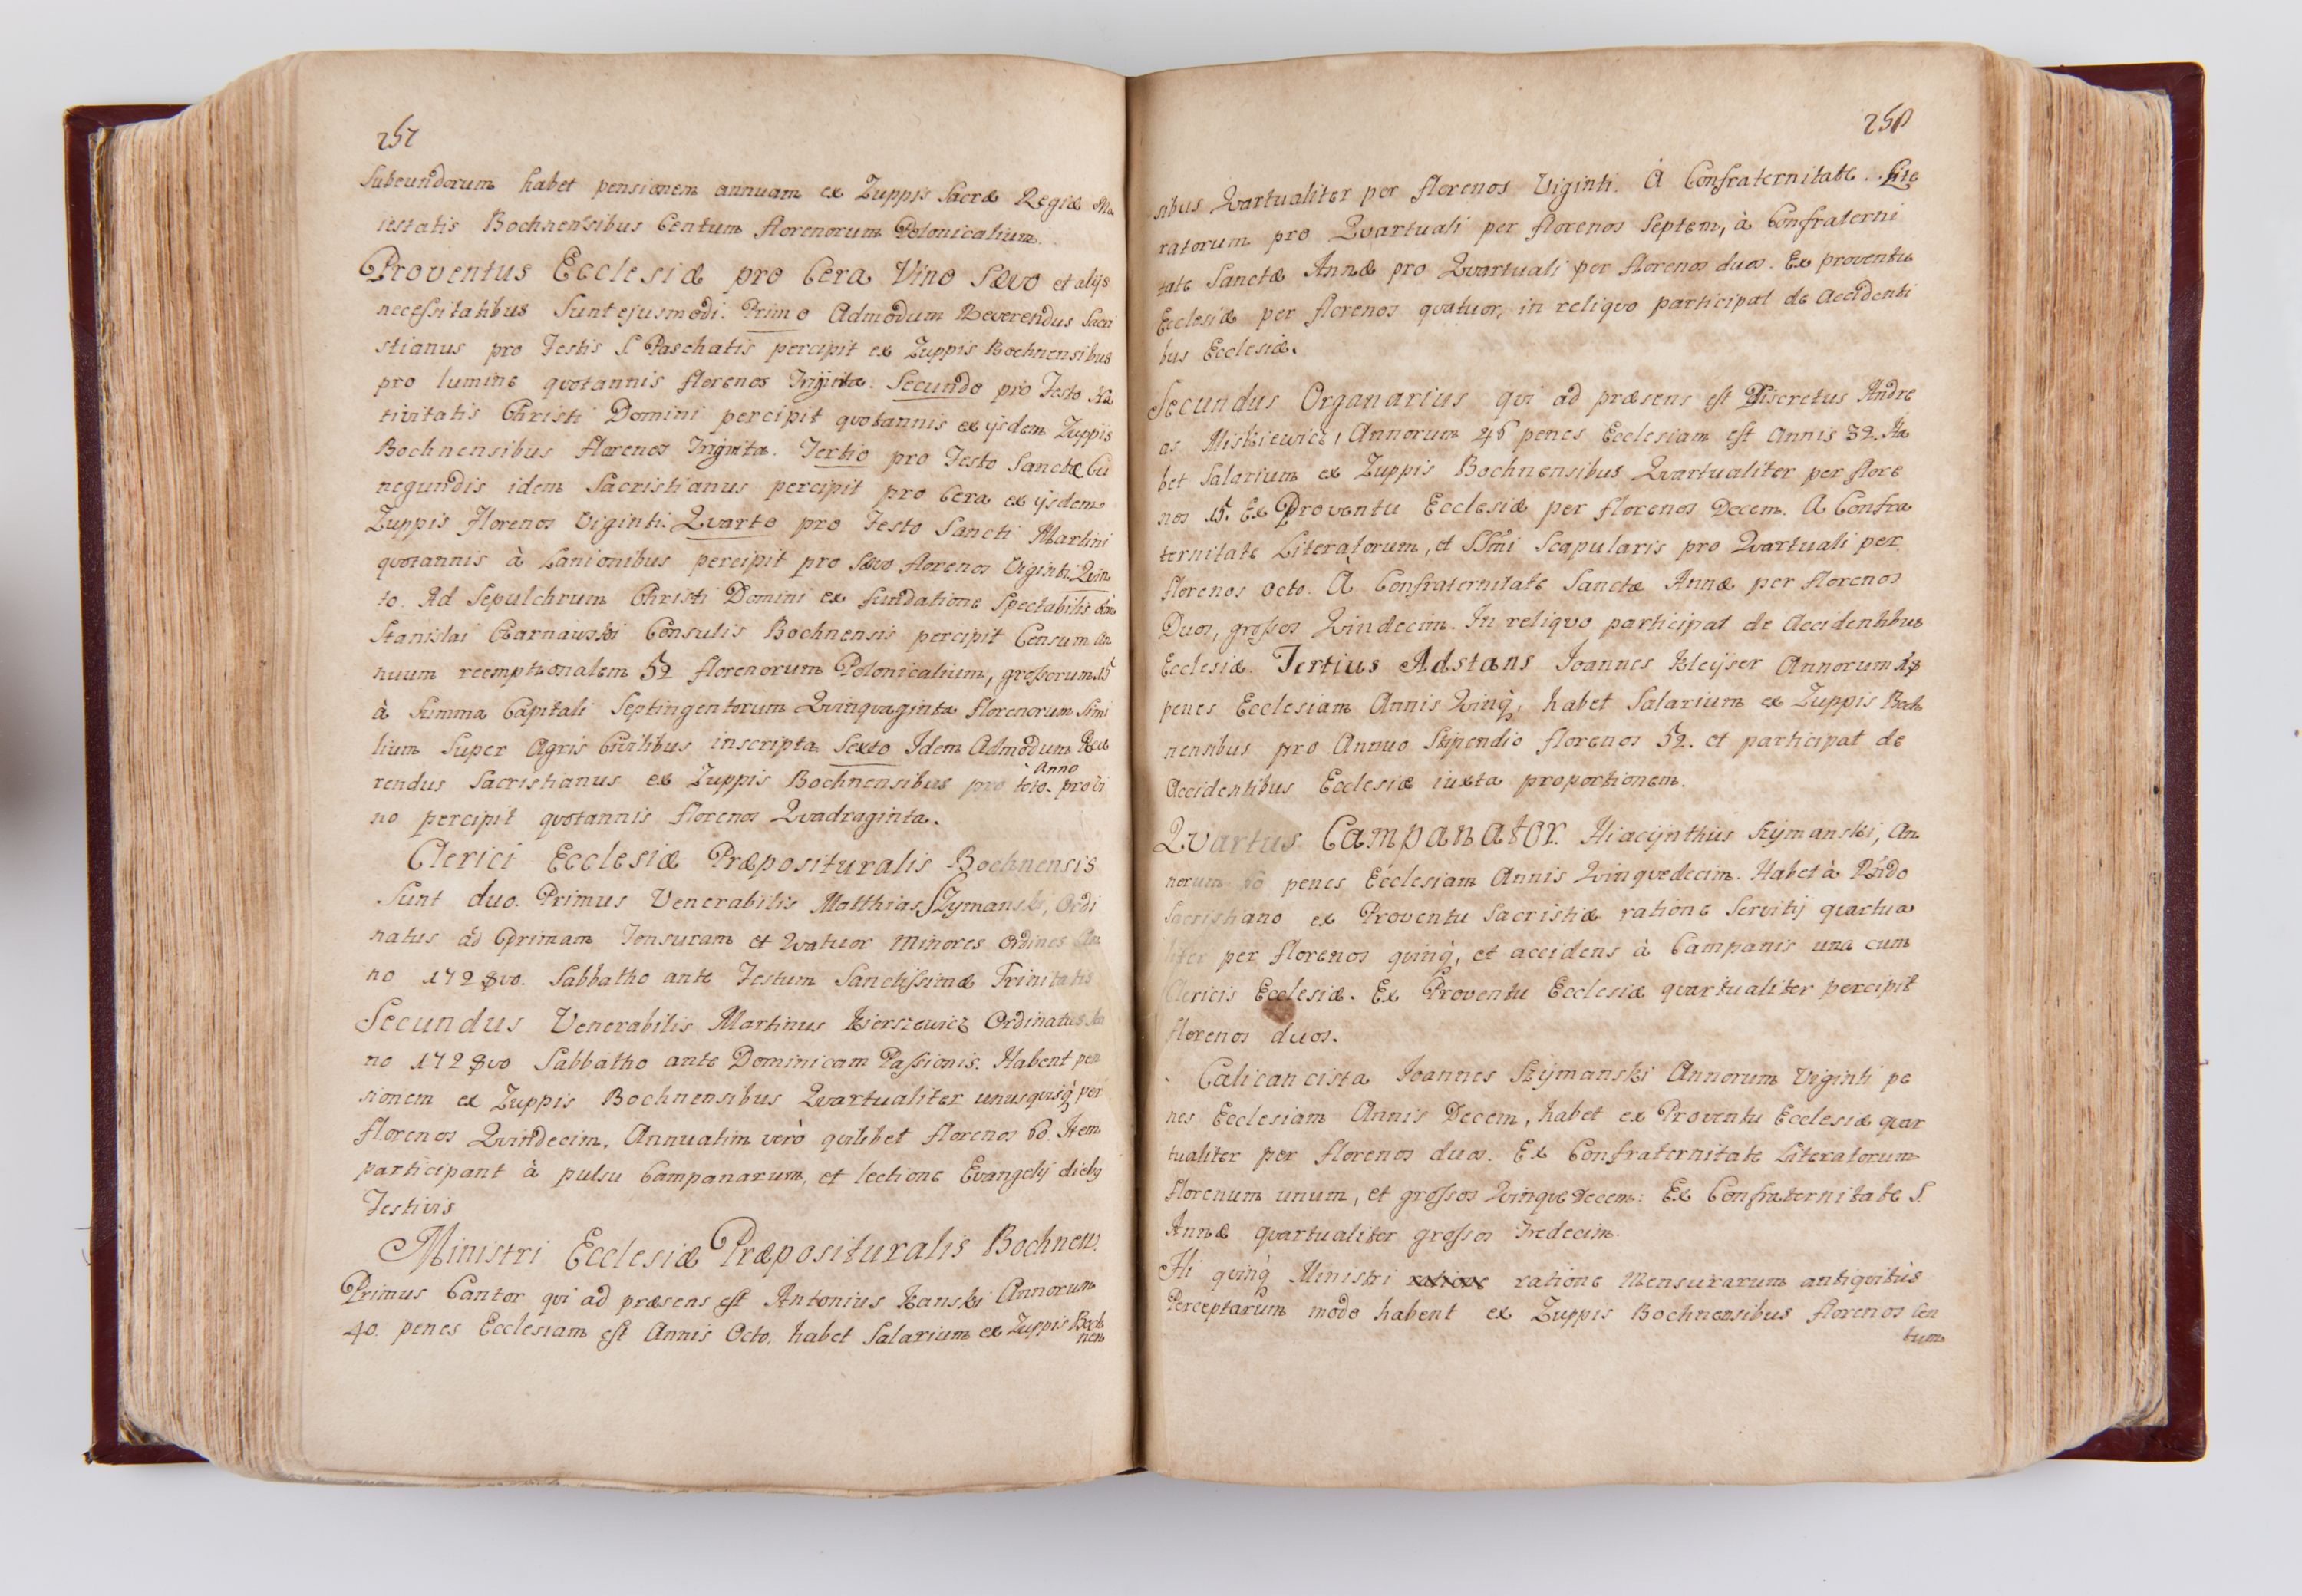 257
subeundorum habet pensionem annuam ex Zuppis Sacræ Regiæ Ma
iestatis Bochnensibus Centum florenorum Polonicalium.
Proventus Ecclesiæ pro Cera Vino Sævo et alijs
necessitatibus sunt ejusmodi. Primo Admodum Reverendus Sacri
stianus pro Festis S. Paschatis percipit ex Zuppis Bochnensibus
pro lumine quotannis florenos Triginta. Secundo pro Festo Na
tivitatis Christi Domini percipit quotannis ex ijsdem Zuppis
Bochnensibus florenos Triginta. Tertio pro Festo Sanctæ Cu
negundis idem Sacristianus percipit pro Cera ex ijsdem
Zuppis Florenos Viginti. Qvarto pro Festo Sancti Martini
quotannis à Lanionibus percipit pro Sævo florenos Viginti. Qvin
to. Ad Sepulchrum Christi Domini ex fundatione Spectabilis olim
Stanislai Czarnawski Consulis Bochnensis percipit Censum An
nuum reemptionalem 52 florenorum Polonicalium, grossorum 15
à Summa Capitali Septingentorum Qvinqvaginta florenorum Simi
lium Super Agris Civilibus inscripta. Sexto Idem Admodum Reve
rendus Sacristianus ex Zuppis Bochnensibus pro toto Anno pro Vi
no percipit quotannis florenos Qvadraginta.
Clerici Ecclesiæ Præposituralis Bochnensis
Sunt duo. Primus Venerabilis Matthias Szymanski, Ordi
natus ad Primam Tonsuram et Qvatuor Minores Ordines An
no 1728vo. Sabbatho ante Festum Sanctissimæ Trinitatis
Secundus Venerabilis Martinus Kierszewicz Ordinatus An
no 1728vo Sabbatho ante Dominicam Passionis. Habent pen
sionem ex Zuppis Bochnensibus Qvartualiter unusquisq̀ per
florenos Qvindecim, Annuatim verò quilibet florenos 60. Item
participant à pulsu Campanarum, et lectione Evangelij dieb9
Festivis
Ministri Ecclesiæ Præposituralis Bochnen.
Primus Cantor qui ad præsens est Antonius Kanski Annorum
40. penes Ecclesiam est Annis Octo, habet Salarium ex Zuppis Boch
nen
258
sibus Qvartualiter per florenos Viginti. À Confraternitate Lite
ratorum pro Qvartuali per florenos Septem, à Confraterni
tate Sanctæ Annæ pro Qvartuali per florenos duos. Ex proventu
Ecclesiæ per florenos quatuor, in reliquo participat de Accidenti
bus Ecclesiæ.
Secundus Organarius qui ad præsens est Discretus Andre
as Miskiewicz, Annorum 46 penes Ecclesiam est Annis 32. Ha
bet Salarium ex Zuppis Bochnensibus Qvartualiter per flore
nos 15. Ex Proventu Ecclesiæ per florenos Decem. A Confra
ternitate Literatorum, et SSmi Scapularis pro Qvartuali per
florenos Octo. À Confraternitate Sanctæ Annæ per florenos
Duos, grossos Qvindecim. In reliquo participat de Accidentibus
Ecclesiæ. Tertius Adstans Joannes Kleyser Annorum
penes Ecclesiam Annis Qvinq̀, habet Salarium ex Zuppis Boch
nensibus pro Annuo Stipendio florenos 52. et participat de
Accidentibus Ecclesiæ iuxta proportionem.
Qvartus Campanator. Hiacynthus Szymanski, An
norum 60 penes Ecclesiam Annis Qvinqvedecim. Habet à Rndo
Sacristiano ex Proventu Sacristiæ ratione Servitij quartua
liter per florenos qvinq̀, et accidens à Campanis una cum
Clericis Ecclesiæ. Ex Proventu Ecclesiæ quartualiter percipit
florenos duos.
Calicancista Joannes Szymanski Annorum Viginti pe
nes Ecclesiam Annis Decem, habet ex Proventu Ecclesiæ quar
tualiter per florenos duos. Ex Confraternitate Literatorum
florenum unum, et grossos Qvinqvedecem: Ex Confraternitate S.
Annæ quartualiter grossos Tredecim.
Hi qvinq̀ Ministri ratione ratione Mensurarum antiquitùs
Perceptarum modo habent ex Zuppis Bochnensibus florenos Cen
tum